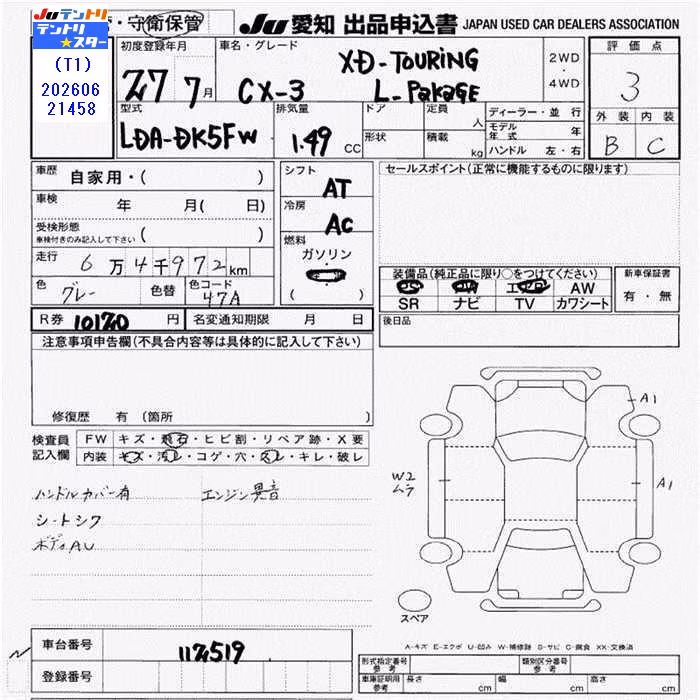 JUテントリ
テントリ★スター
・守衛保管
JU 愛知 出品申込書 JAPAN USED CAR DEALERS ASSOCIATION
(T1)
202606
21458
初度登録年月
27 7月
車名・グレード
XD-TOURING
CX-3 L-PaKaGE
2WD
・
4WD
評価点
3
外装 内装
B C
型式
LDA-DK5FW
排気量
1.49 CC
ドア
形状
定員 人
積載 kg
ディーラー・並行
モデル年式 年
ハンドル 左・右
車歴 自家用・( )
車検 年 月( 日)
受検形態
車検付きのみ記入して下さい ( )
走行 6万4千972km
色 グレー 色替 色コード 47A
シフト
AT
冷房
AC
燃料
ガソリン
( )
セールスポイント(正常に機能するものに限ります)
装備品(純正品に限り○をつけてください)
PS PW エアB AW
SR ナビ TV カワシート
新車保証書
有・無
R券 10170円 名変通知期限 月 日
後日品
注意事項申告欄(不具合内容等は具体的に記入して下さい)
修復歴 有(箇所 )
検査員記入欄
FW キズ・飛石・ヒビ割・リペア跡・X要
内装 キズ・汚レ・コゲ・穴・スレ・キレ・破レ
ハンドルカバー有 エンジン異音
シートシワ
ボディAU
A1
W2
ムラ
A1
スペア
A-キズ E-エクボ U-凹み W-補修跡 S-サビ C-腐食 XX-交換済
車台番号 112519
登録番号
形式指定番号 参考
類別区分番号 参考
車庫証明用 参考 長さ cm 幅 cm 高さ cm